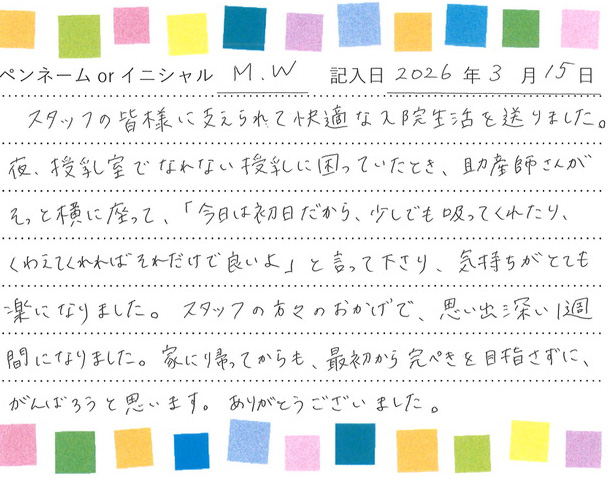 ペンネーム or イニシャル M.W 記入日 2026 年 3 月 15 日
スタッフの皆様に支えられて快適な入院生活を送りました。
夜、授乳室でなれない授乳に困っていたとき、助産師さんが
そっと横に座って、「今日は初日だから、少しでも吸ってくれたり、
くわえてくれればそれだけで良いよ」と言って下さり、気持ちがとても
楽になりました。スタッフの方々のおかげで、思い出深い1週
間になりました。家に帰ってからも、最初から完ぺきを目指さずに、
がんばろうと思います。ありがとうございました。